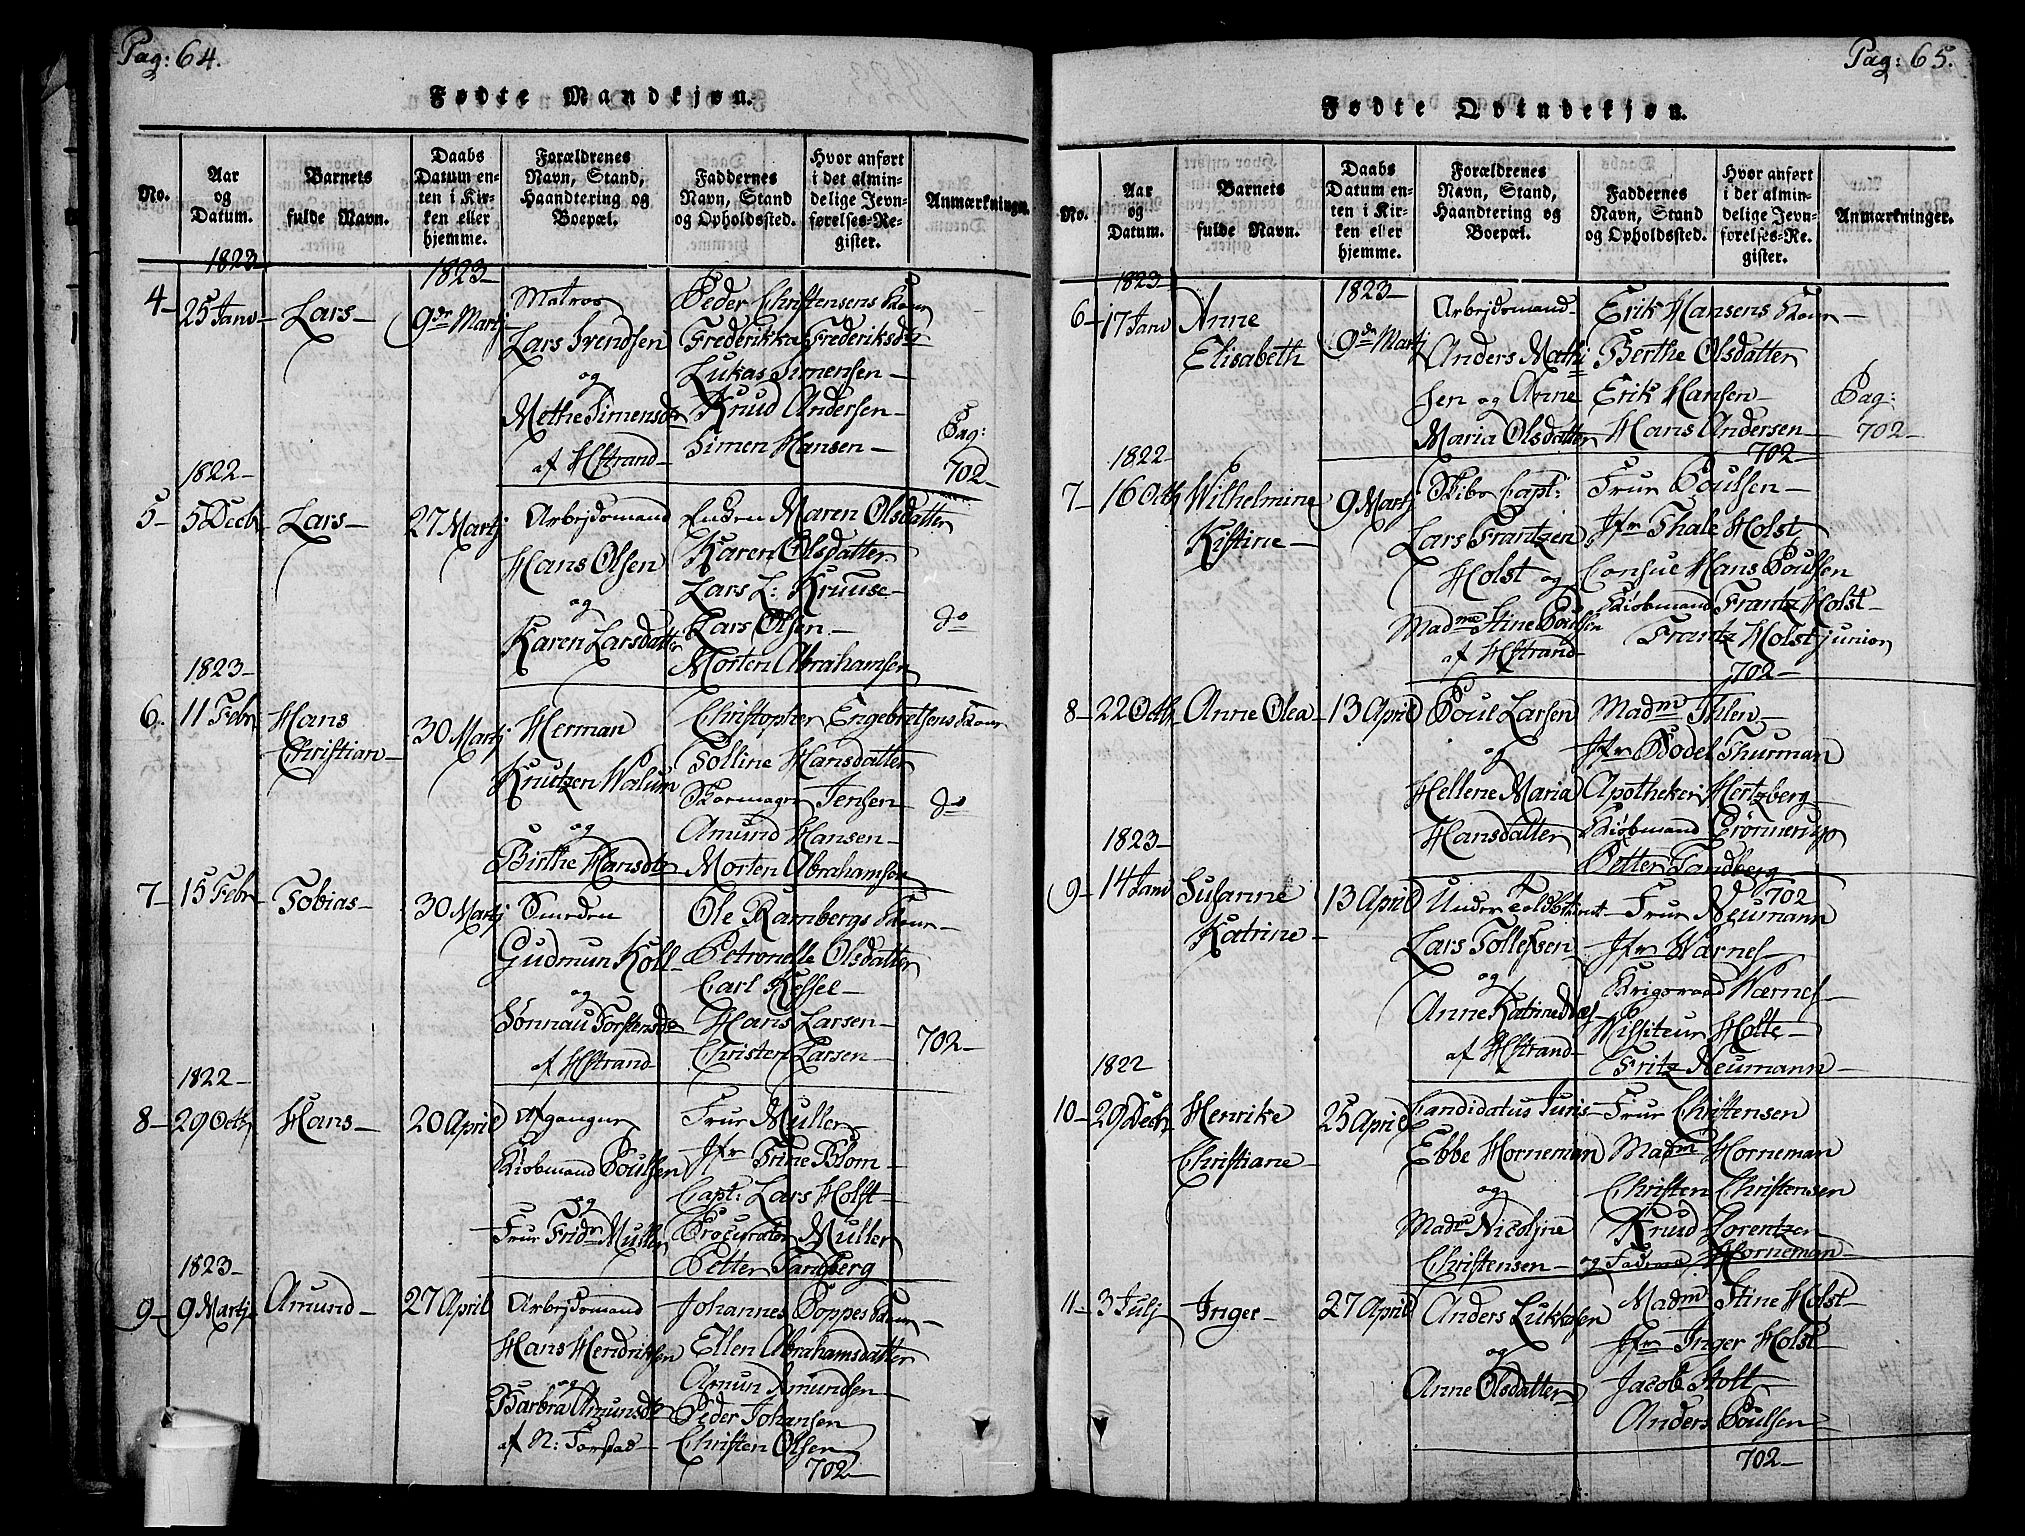 Pag: 64.
Fødte Mandkjøn.
No.
Aar og Datum.
Barnets fulde Navn.
Daabs Datum enten i Kirken eller hjemme.
Forældrenes Navn, Stand, Haandtering og Boepæl.
Faddernes Navn, Stand og Opholdssted.
Hvor anført i det almindelige Jevnførelses-Register.
Anmærkninger.
1823
4 -
25 Janv -
Lars -
1823 -
9de Martj
Matros
Lars Svendsen
og
Methe Simensdr
af Hstrand -
Peder Christensens Kone
Frederikka Frederiksdtr
Lukas Simensen -
Knud Andersen -
Simen Hansen -
Pag:
702 -
1822 -
5 -
5 Decbr
Lars -
27 Martj
Arbejdsmand
Hans Olsen
og
Karen Larsdatter
Enken Maren Olsdatter
Karen Olsdatter
Lars L: Kruuse -
Lars Olsen -
Morten Abrahamsen
do
1823 -
6 -
11 Febr
Hans
Christian -
30 Martj
Herman
Knutzen Walum
og
Birthe Hansdtr
Christopher Engebretsens Kone
Solline Hansdatter
Skomager Jensen -
Amund Hansen -
Morten Abrahamsen
do
7 -
15 Febr
Tobias -
30 Martj
Smeden
Gudmun Koll -
og
Sønnau Torstensdr
af Hstrand
Ole Rambergs Kone -
Petronelle Olsdatter
Carl Kessel -
Hans Larsen -
Christen Larsen -
702 -
1822 -
8 -
29 Octb
Hans -
20 April
Afgangne
Kiøbmand Poulsen
og
Frue Fridr Muller
Frue Muller
Jfr Trine Blom -
Capt: Lars Holst -
Procurator Muller
Petter Sandberg
1823 -
9 -
9 Martj
Amund -
27 April
Arbejdsmand
Hans Hendriksen
og
Barbra Amundsdtr
af N: Torstad -
Johannes Poppes Kone -
Ellen Abrahamsdatter
Amun Amundsen -
Peder Johansen
Christen Olsen
702 -
Pag: 65.
Fødte Qvindekjøn.
No.
Aar og Datum.
Barnets fulde Navn.
Daabs Datum enten i Kirken eller hjemme.
Forældrenes Navn, Stand, Haandtering og Boepæl.
Faddernes Navn, Stand og Opholdssted.
Hvor anført i det almindelige Jevnførelses-Register.
Anmærkninger.
1823
6 -
17 Janv
Anne
Elisabeth
1823 -
9de Martj
Arbejdsmand -
Anders Mathi
sen og Anne
Maria Olsdatter
Erik Hansens Kone -
Berthe Olsdatter
Erik Hansen -
Hans Andersen -
702 -
Pag:
702 -
1822 -
7 -
16 Octb
Wilhelmine
Kistine -
9 Martj
Skibs Capt:
Lars Frantzen
Holst og
Madme Stine Poulsen
af Hstrand -
Frue Poulsen -
Jfr Thale Holst
Consul Hans Poulsen
Kiøbmand Frantz Holst -
Frantz Holst junior
702 -
8 -
22 Octb
Anne Olea -
13 April
Poul Larsen
og
Hellene Maria
Hansdatter
Madm Ihlen -
Jfr Bodel Thurman
Apotheker Hertzberg -
Kiøbmand Grønnerup
Petter Sandberg
702
1823 -
9 -
14 Janv
Susanne
Katrine -
13 April
Under Toldbetient -
Lars Tollefsen
og
Anne Katrine
af Hstrand -
Frue Neumann
Jfr Wærnes -
Krigsraad Wærnes -
Wissiteur Holte -
Fritz Neumann -
1822
10 -
29 Decb
Henrike
Christiane -
25 April
Candidatus Juris -
Ebbe Horneman
og
Madm Nicoline
Christensen -
Frue Christensen
Madm Horneman
Christen Christensen
Knud Lorentzen
og Faderen Horneman -
11 -
3 Julj
Inger -
27 April
Anders Lukkasen
og
Anne Olsdatter
Madm Stine Holst -
Jfr Inger Holst -
Jacob Stolt -
Anders Poulsen -
702 -